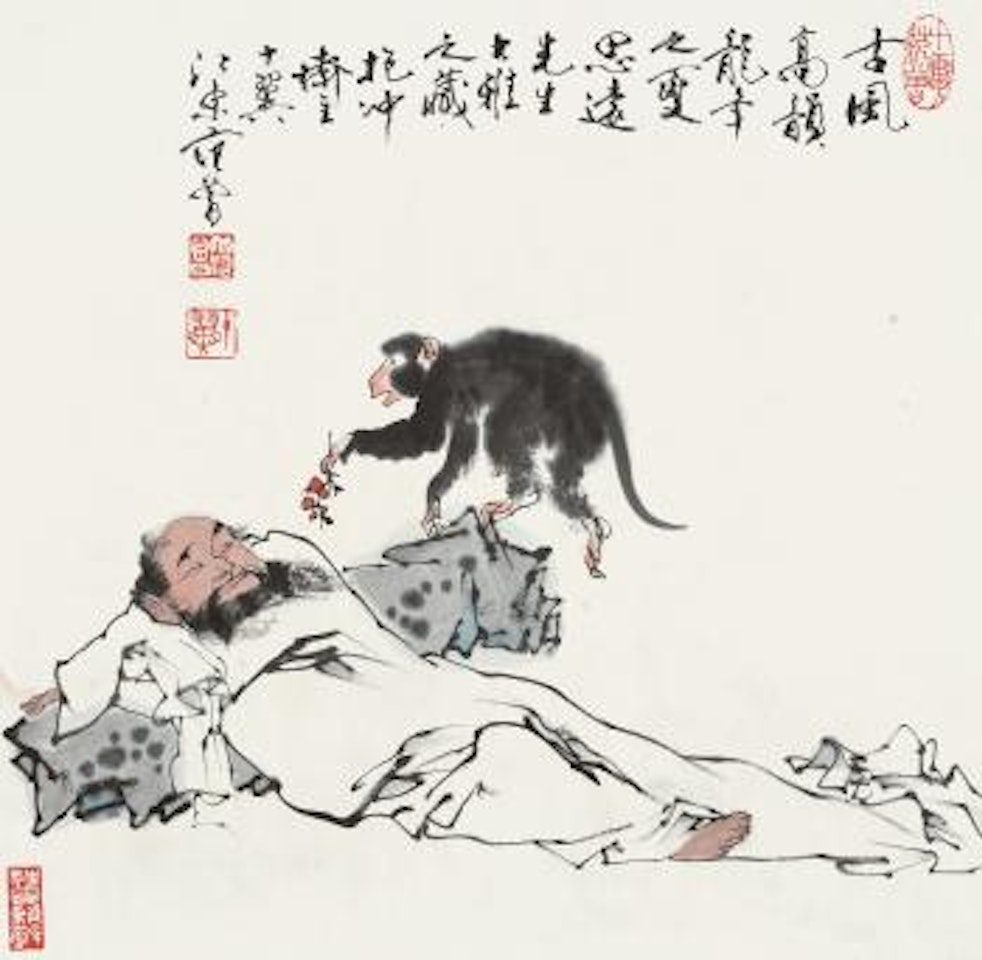 古風
高韻
龍年
之夏
思遠
先生
大雅
之藏
抱冲
齋主
十翼
江東范曾